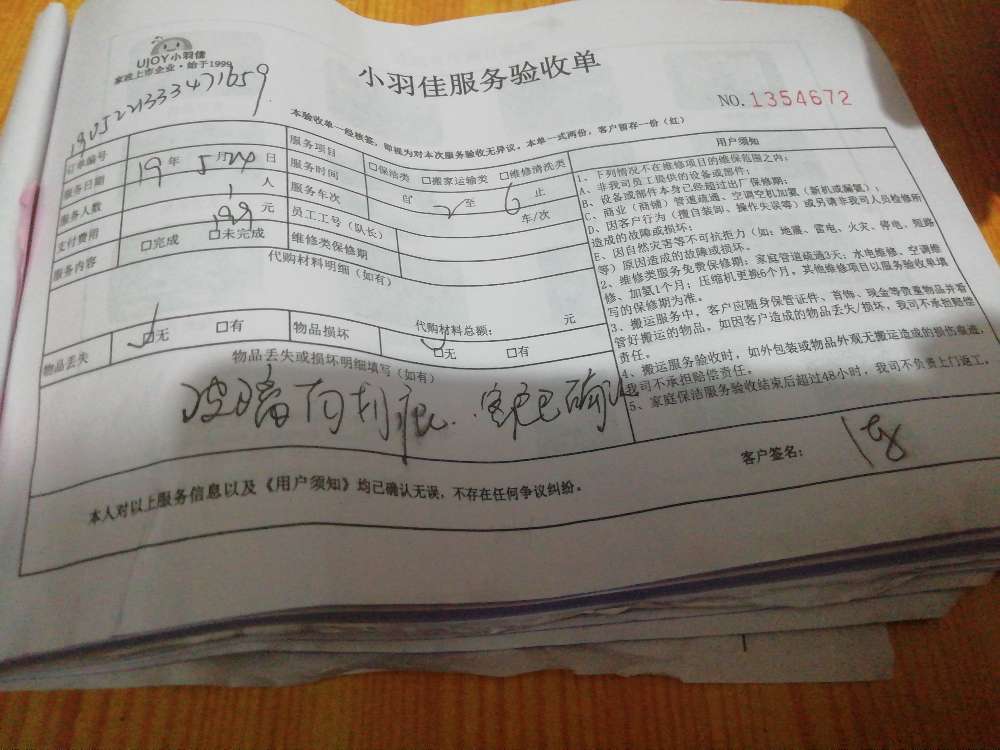 UJOY小羽佳
家政上市企业·始于1999
小羽佳服务验收单
NO.1354672
1905221333471659
本验收单一经核签，即视为对本次服务验收无异议。本单一式两份，客户留存一份（红）
订单编号
服务项目 □保洁类 □搬家运输类 □维修清洗类
服务日期 19年5月24日
服务时间 自 2 至 6 止
服务人数 1 人
服务车次 车/次
支付费用 198 元
员工工号（队长）
服务内容 □完成 □未完成
维修类保修期
代购材料明细（如有）
代购材料总额： 元
物品丢失 □无 □有 物品损坏 □无 □有
物品丢失或损坏明细填写（如有）
玻璃有划痕.客户已确认
用户须知
1、下列情况不在维修项目的维保范围之内：
A、非我司员工提供的设备或部件；
B、设备或部件本身已经超过出厂保修期；
C、商业（商铺）管道疏通、空调空机加氟（新机或漏氟）；
D、因客户行为（擅自装卸、操作失误等）或另请非我司人员检修所
造成的故障或损坏；
E、因自然灾害等不可抗拒力（如：地震、雷电、火灾、停电、短路
等）原因造成的故障或损坏。
2、维修类服务免费保修期：家庭管道疏通3天；水电维修、空调维
修、加氨1个月；压缩机更换6个月，其他维修项目以服务验收单填
写的保修期为准。
3、搬运服务中，客户应随身保管证件、首饰、现金等贵重物品并看
管好搬运的物品，如因客户造成的物品丢失/损坏，我司不承担赔偿
责任。
4、搬运服务验收时，如外包装或物品外观无搬运造成的损伤痕迹，
我司不承担赔偿责任。
5、家庭保洁服务验收结束后超过48小时，我司不负责上门返工。
本人对以上服务信息以及《用户须知》均已确认无误，不存在任何争议纠纷。
客户签名：